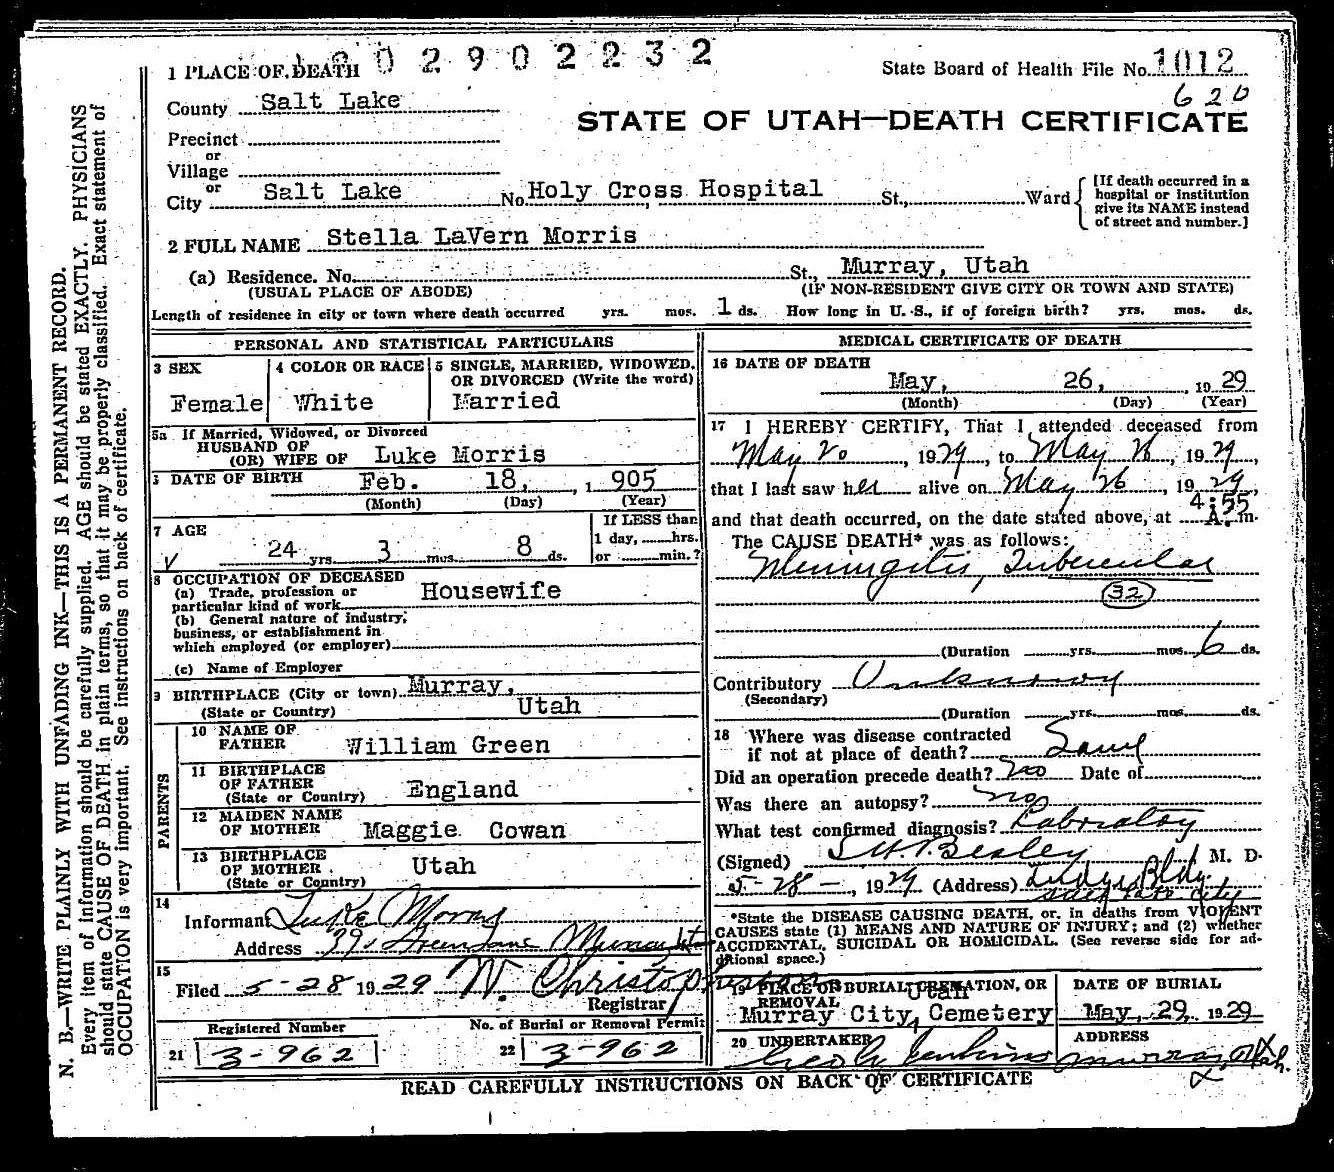 1 PLACE OF DEATH 2 9 0 2 2 3 2 State Board of Health File No. 1012
620
County Salt Lake
STATE OF UTAH—DEATH CERTIFICATE
Precinct
or
Village
or
City Salt Lake No. Holy Cross Hospital St., Ward
[If death occurred in a
hospital or institution
give its NAME instead
of street and number.]
2 FULL NAME Stella LaVern Morris
(a) Residence. No. St., Murray, Utah
(USUAL PLACE OF ABODE) (IF NON-RESIDENT GIVE CITY OR TOWN AND STATE)
Length of residence in city or town where death occurred yrs. mos. 1 ds. How long in U. S., if of foreign birth? yrs. mos. ds.
PERSONAL AND STATISTICAL PARTICULARS
3 SEX
Female
4 COLOR OR RACE
White
5 SINGLE, MARRIED, WIDOWED,
OR DIVORCED (Write the word)
Married
5a If Married, Widowed, or Divorced
HUSBAND OF
(OR) WIFE OF Luke Morris
DATE OF BIRTH Feb. 18, 1905
(Month) (Day) (Year)
7 AGE
24 yrs. 3 mos. 8 ds.
If LESS than
1 day, hrs.
or min.?
8 OCCUPATION OF DECEASED
(a) Trade, profession or
particular kind of work Housewife
(b) General nature of industry,
business, or establishment in
which employed (or employer)
(c) Name of Employer
9 BIRTHPLACE (City or town) Murray,
(State or Country) Utah
PARENTS
10 NAME OF
FATHER William Green
11 BIRTHPLACE
OF FATHER
(State or Country) England
12 MAIDEN NAME
OF MOTHER Maggie Cowan
13 BIRTHPLACE
OF MOTHER
(State or Country) Utah
14
Informant Luke Morris
Address Murray
15
Filed 5-28 1929 W. Christopherson
Registrar
Registered Number
21 3-962
No. of Burial or Removal Permit
22 3-962
MEDICAL CERTIFICATE OF DEATH
16 DATE OF DEATH
May, 26, 1929
(Month) (Day) (Year)
17 I HEREBY CERTIFY, That I attended deceased from
May 20, 1929, to May 26, 1929,
that I last saw her alive on May 26, 1929,
4:55
and that death occurred, on the date stated above, at A. m.
The CAUSE DEATH* was as follows:
Meningitis, Tubercular
32
(Duration yrs. mos. 6 ds.
Contributory Unknown
(Secondary)
(Duration yrs. mos. ds.
18 Where was disease contracted
if not at place of death? Same
Did an operation precede death? No Date of
Was there an autopsy? no
What test confirmed diagnosis? Laboratory
(Signed) Besley M. D.
5-28-, 1929 (Address) Bldg.
Salt Lake City
*State the DISEASE CAUSING DEATH, or, in deaths from VIOLENT
CAUSES state (1) MEANS AND NATURE OF INJURY; and (2) whether
ACCIDENTAL, SUICIDAL OR HOMICIDAL. (See reverse side for ad-
ditional space.)
19 PLACE OF BURIAL, CREMATION, OR
REMOVAL Utah
Murray City, Cemetery
DATE OF BURIAL
May, 29, 1929
20 UNDERTAKER
Jenkins
ADDRESS
Murray, Utah.
READ CAREFULLY INSTRUCTIONS ON BACK OF CERTIFICATE
N. B.—WRITE PLAINLY WITH UNFADING INK—THIS IS A PERMANENT RECORD.
Every item of information should be carefully supplied. AGE should be stated EXACTLY. PHYSICIANS
should state CAUSE OF DEATH in plain terms, so that it may be properly classified. Exact statement of
OCCUPATION is very important. See instructions on back of certificate.